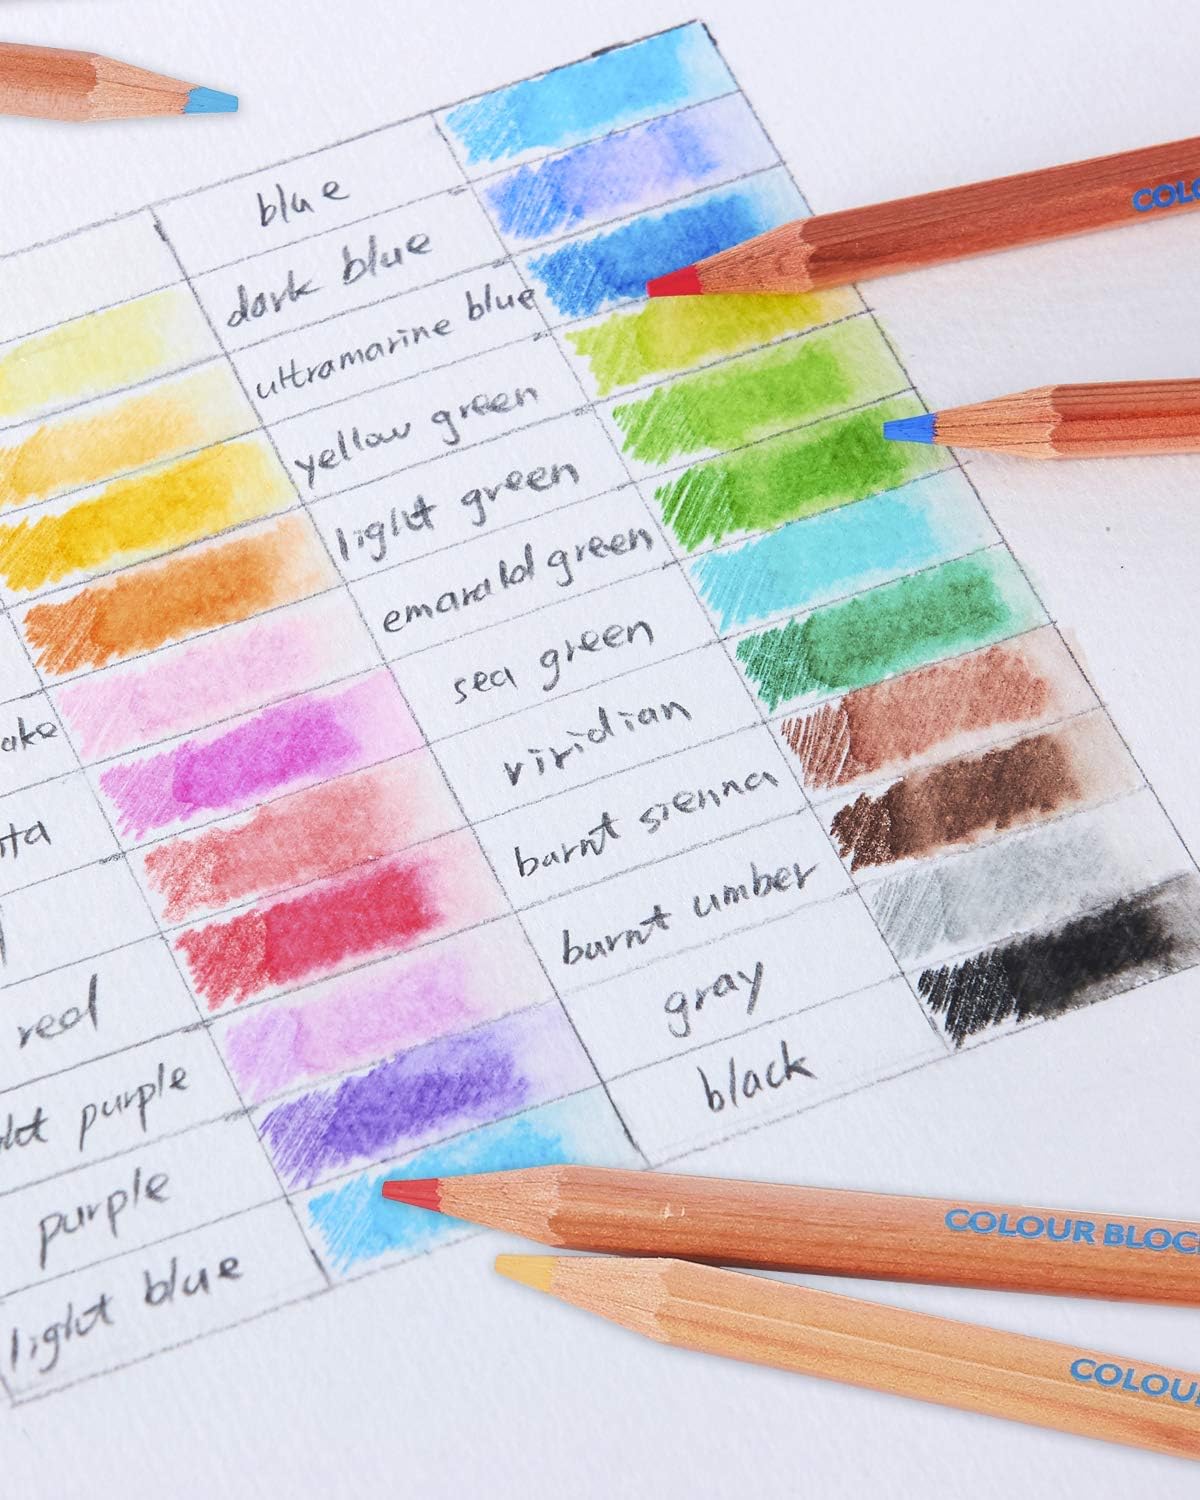 blue
dark blue
ultramarine blue
yellow green
light green
emarald green
sea green
viridian
burnt sienna
burnt umber
gray
black
red
purple
light blue
purple
COLOUR BLOC
COLOU
COLO